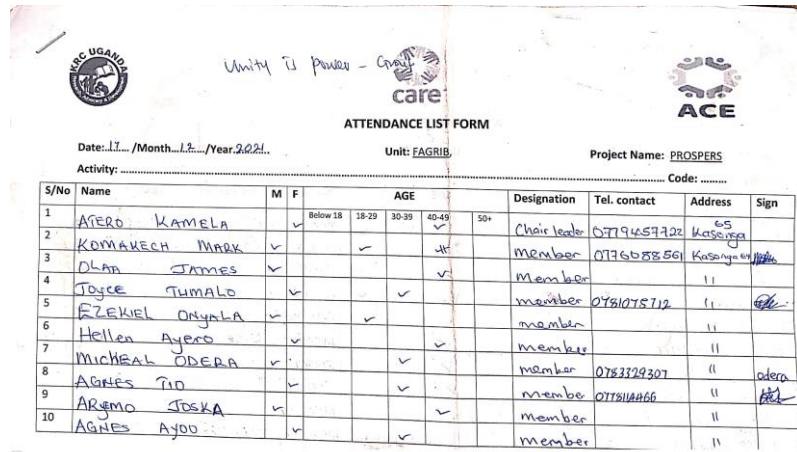 KRC UGANDA
Unity is power - Group
care
ACE
ATTENDANCE LIST FORM
Date:..17.../Month...12.../Year.2021..
Unit: FAGRIB,
Project Name: PROSPERS
Activity: ........ Code: .........
S/No Name M F AGE Designation Tel. contact Address Sign
Below 18 18-29 30-39 40-49 50+
1 ATERO KAMELA ✓ ✓ Chair leader 0779457722 65 Kasonga
2 KOMAKECH MARK ✓ ✓ member 0776088561 Kasonga
3 OLAA JAMES ✓ ✓ Member 11
4 Joyce TUMALO ✓ ✓ member 0781075712 11
5 EZEKIEL ONYALA ✓ ✓ member 11
6 Hellen Ayero ✓ ✓ member 11
7 MICHEAL ODERA ✓ ✓ member 0783329307 11 odera
8 AGNES TIO ✓ ✓ member 11
9 ARYEMO JOSKA ✓ ✓ member 11
10 AGNES AYOO ✓ ✓ member 11